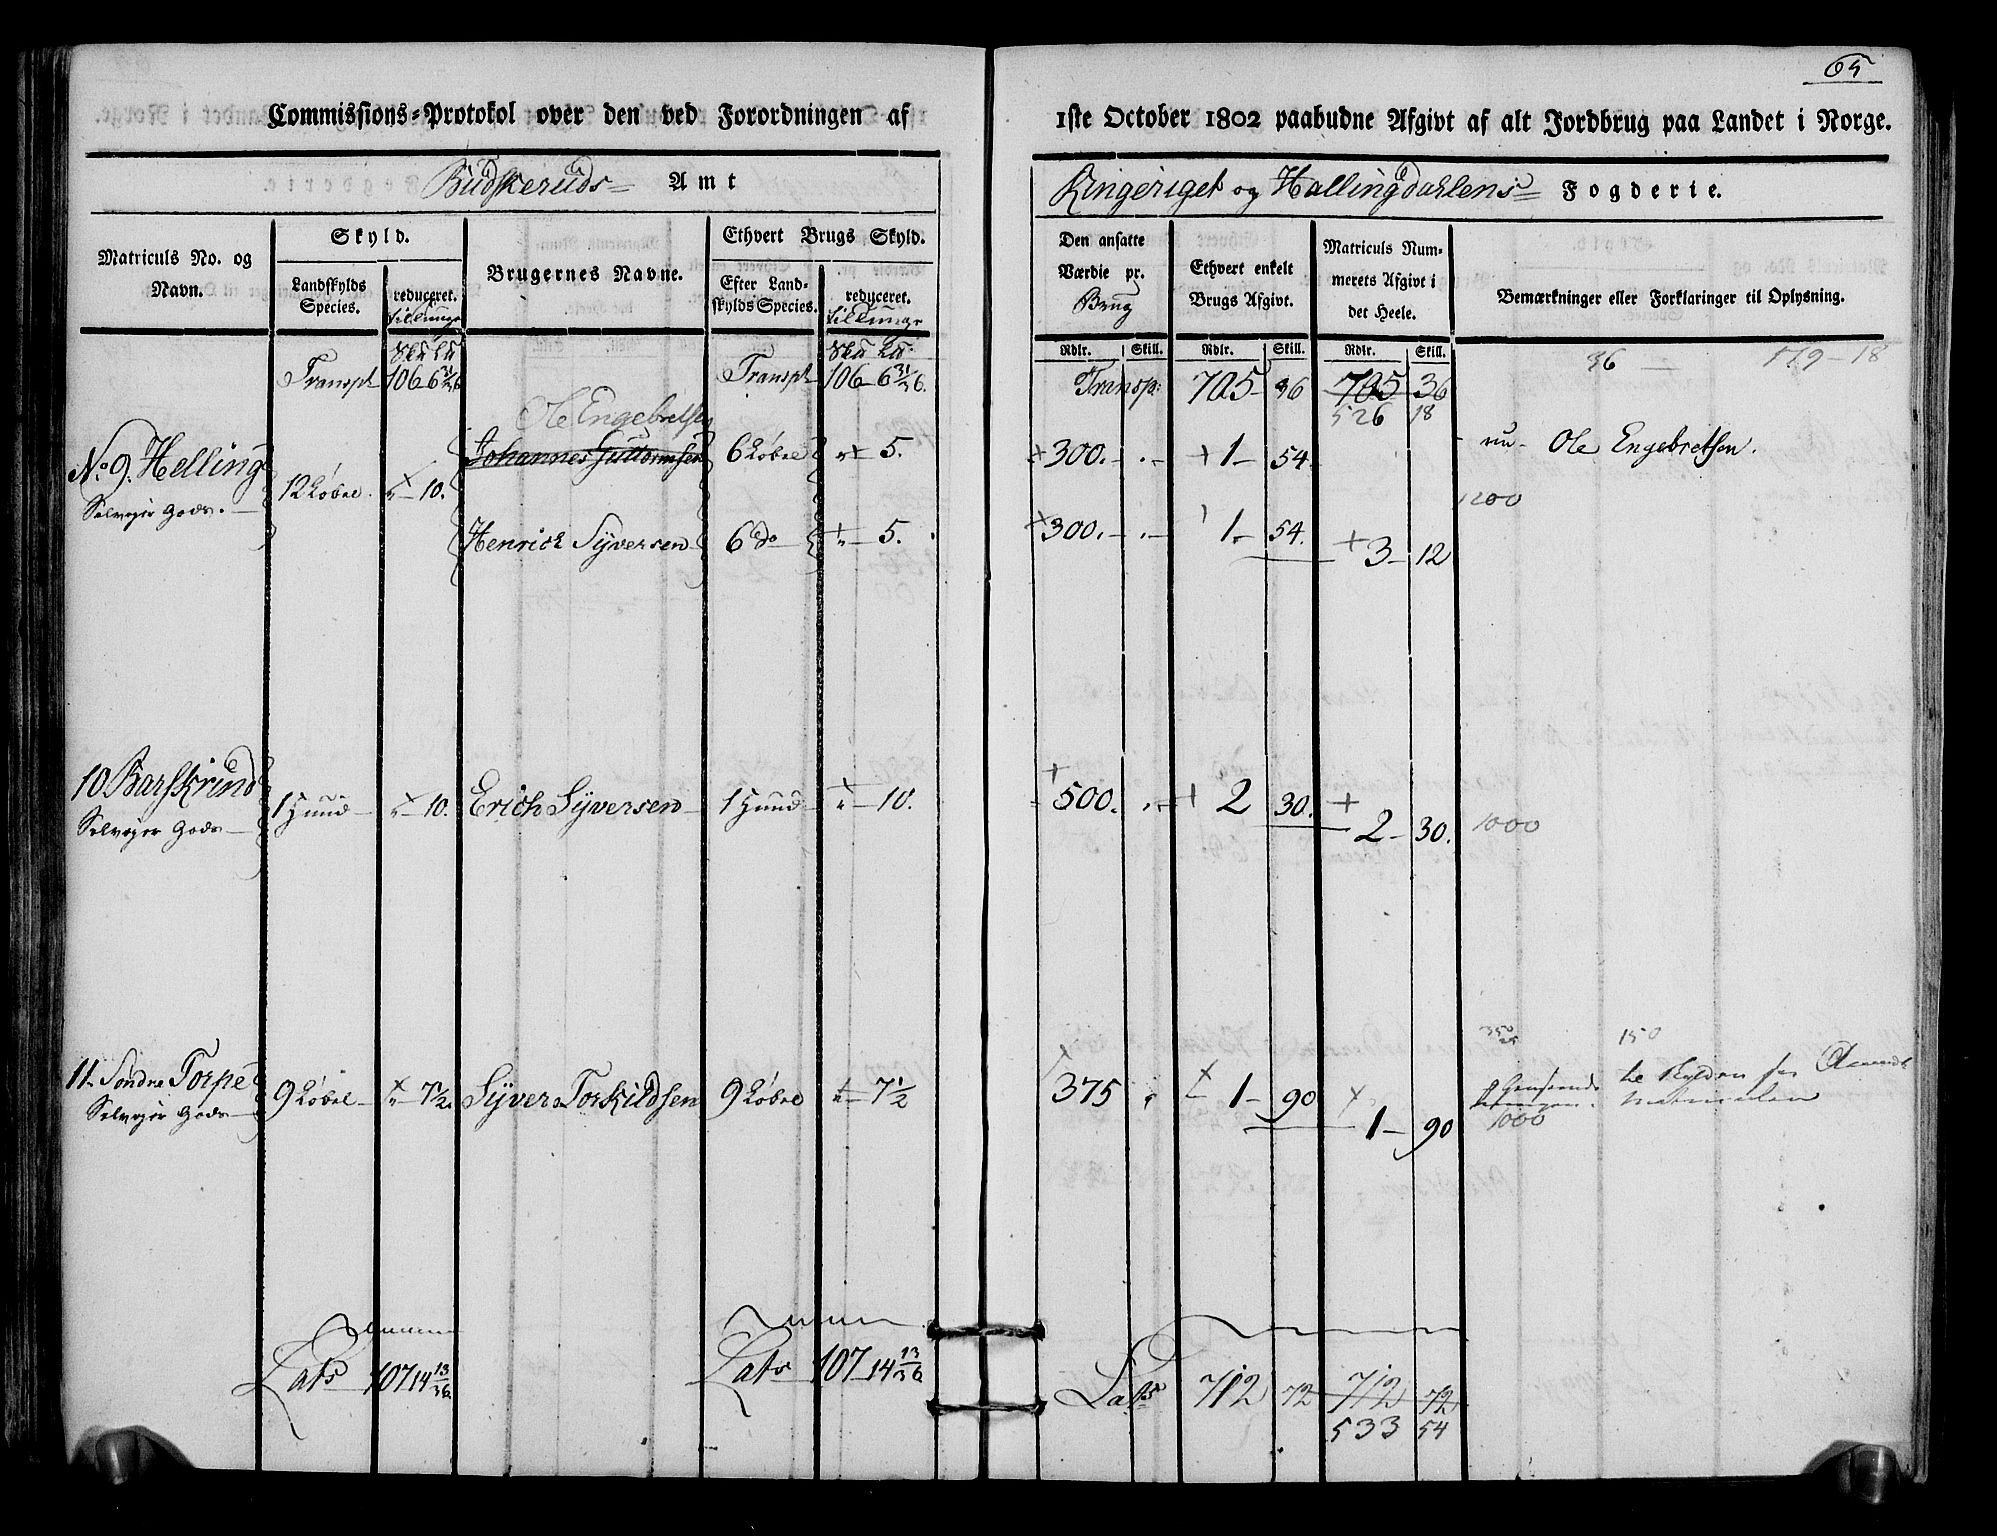 65
Commissions-Protokol over den ved Forordningen af 1ste October 1802 paabudne Afgivt af alt Jordbrug paa Landet i Norge.
Budskeruds Amt
Ringeriget og Hallingdahlens Fogderie.
Matriculs No. og Navn.
Skyld.
Landskylds Species.
reduceret. til Tunge
Brugernes Navne.
Ethvert Brugs Skyld.
Efter Landskylds Species.
reduceret. til Tunge
Den ansatte Værdie pr. Brug
Ethvert enkelt Brugs Afgivt.
Matriculs Nummerets Afgivt i det Heele.
Bemærkninger eller Forklaringer til Oplysning.
Rdlr. Skill. Rdlr. Skill. Rdlr. Skill.
Transpt 106 6 31/36 Transpt 106 6 31/36. Transp: 705 36 705 36
526 18
36 179-18
Ole Engebretsen
No 9. Helling 12 Løbel. " 10. Johannes Guttormsen 6 Løbel " 5. 300. 1 54 nu Ole Engebretsen.
Selveyer Gods.
1200
Henrich Syversen 6 do " 5. 300. 1 54. 3 12
10 Barskrind 1 Huud " 10. Erich Syversen 1 Huud " 10. 500. 2 30. 2 30. 1000
Selveyer Gods
150
11. Søndre Torpe 9 Løbel " 7 1/2. Syver Torkildsen 9 Løbel " 7 1/2 375 1 90 1 90
Selveyer Gods
1000
Lats 107 14 13/36 Lats 107 14 13/36 Lats 712 72 712 72
533 54